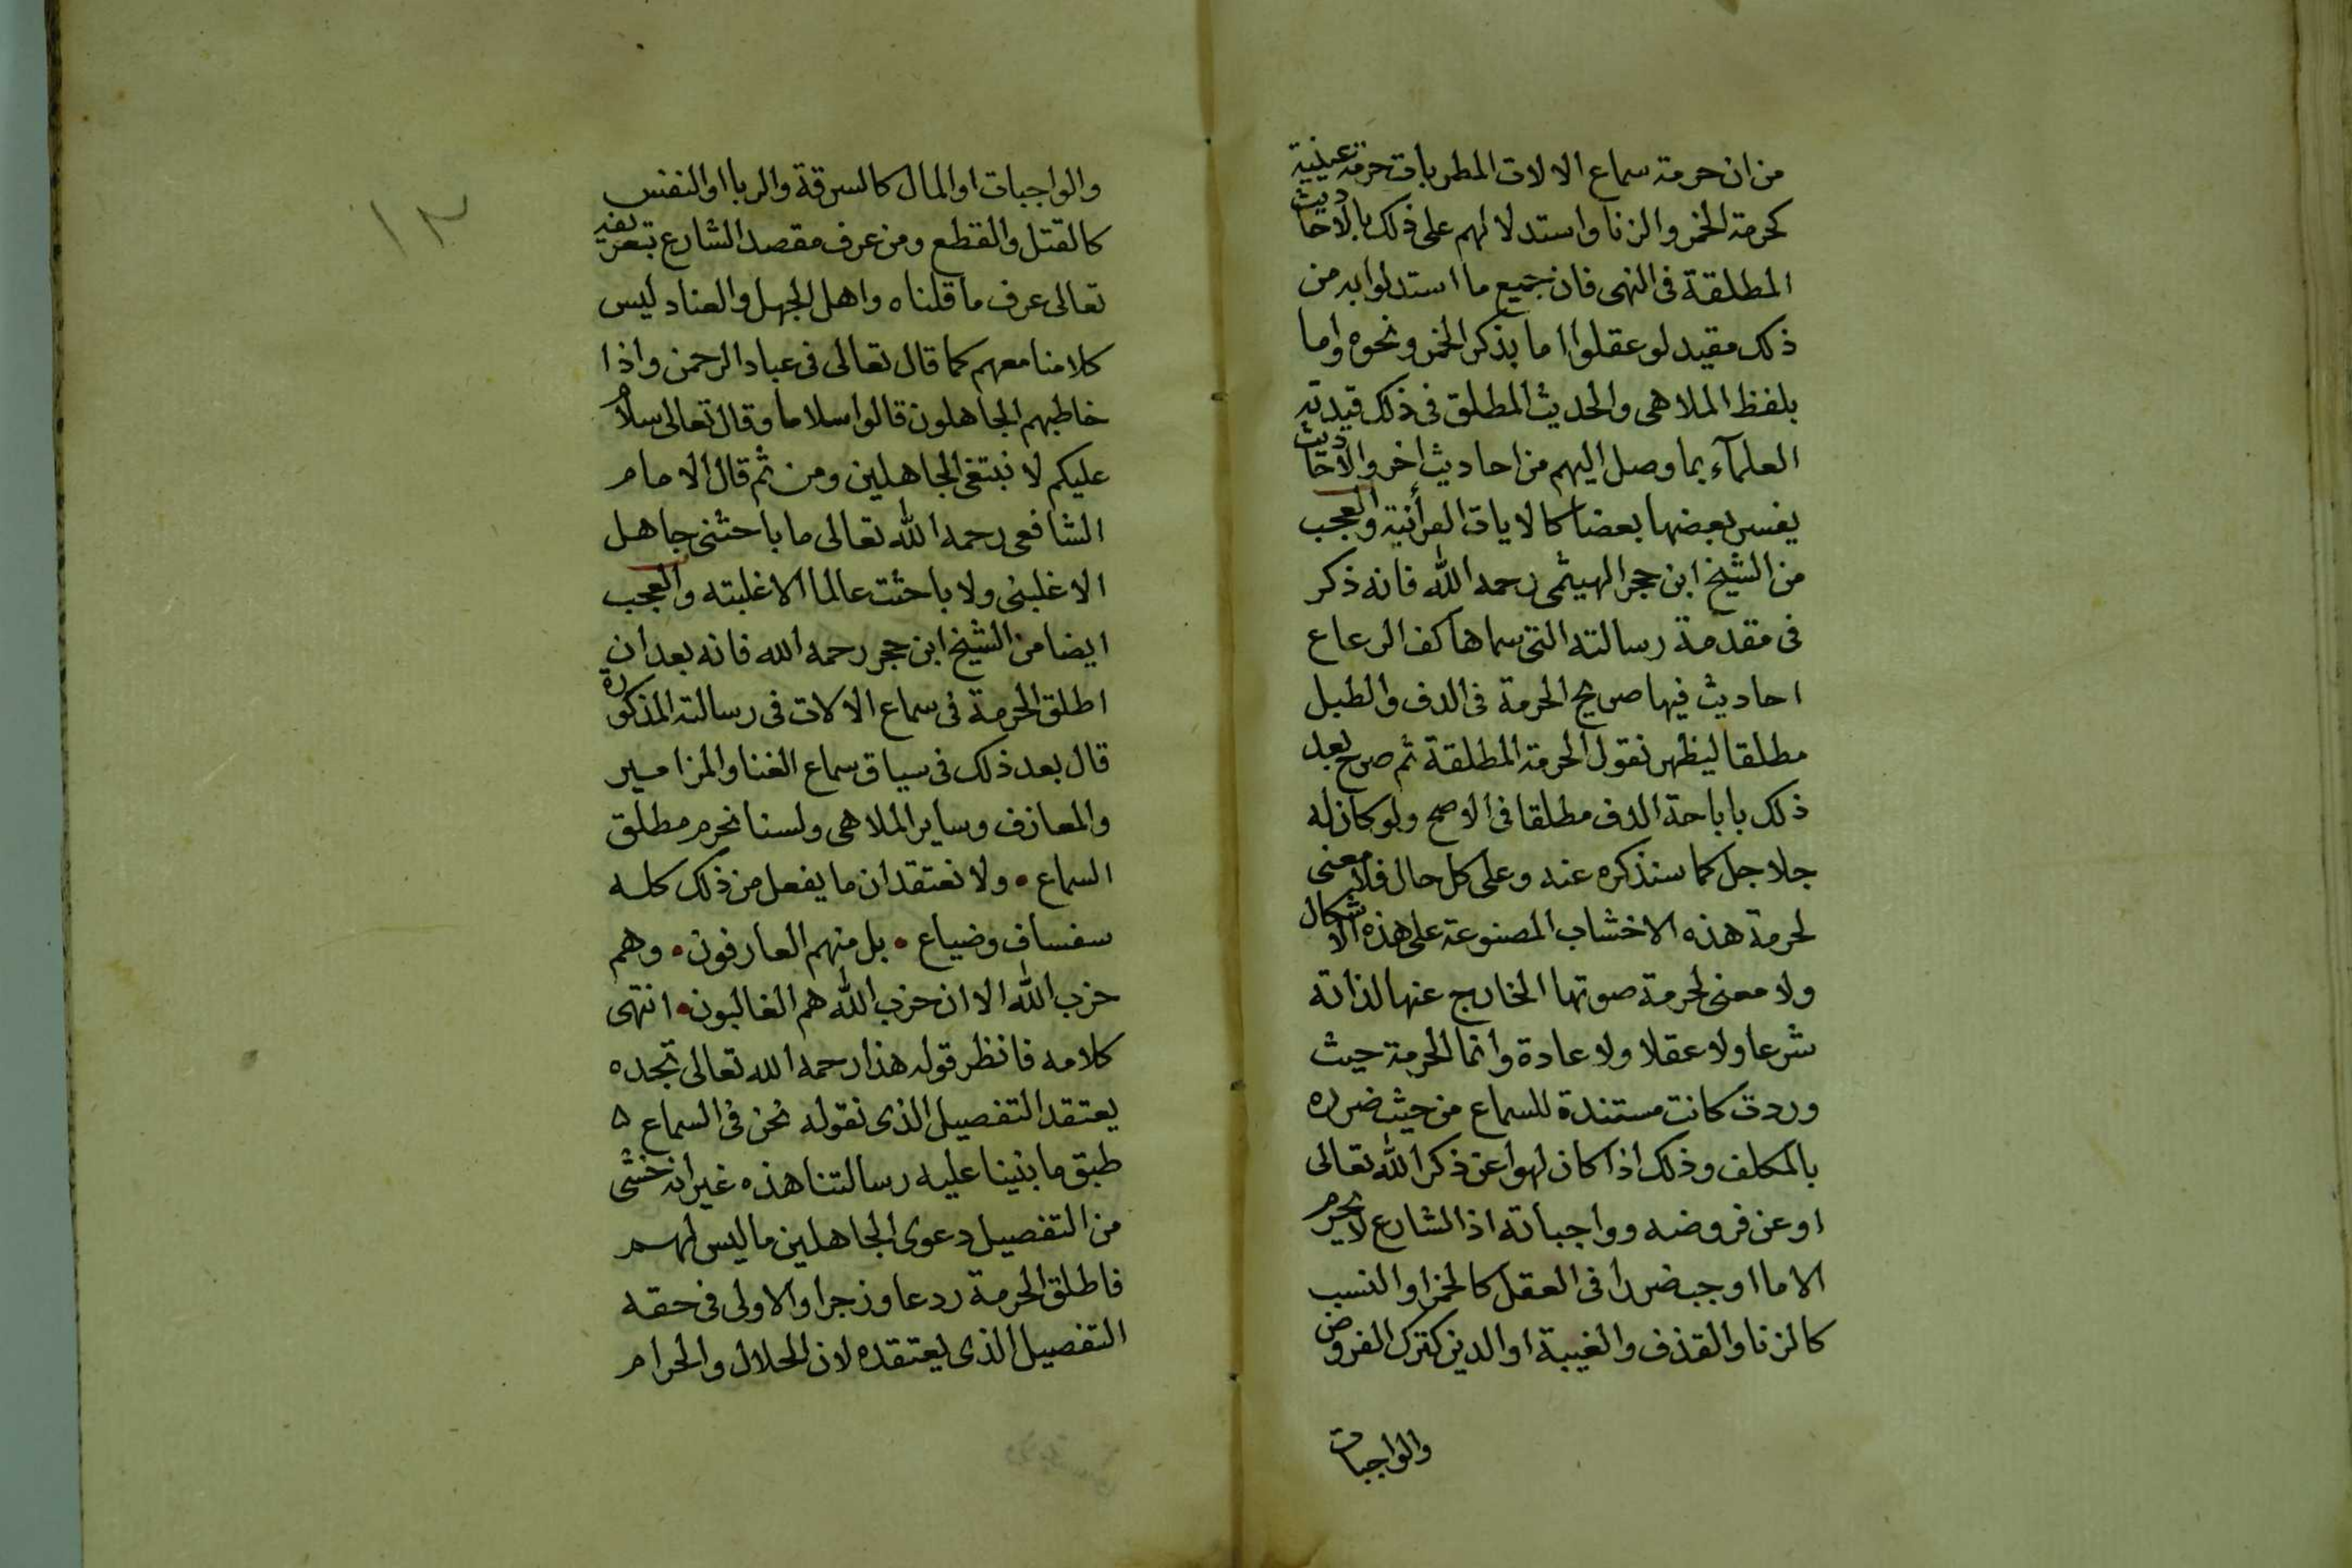 من ان حرمة سماع الالات المطربات حرمة عينية
كحرمة الخمر والزنا واستدلالهم على ذلك بالاحاديث
المطلقة فى النهى فان جميع ما استدلوا به من
ذلك مقيد لو عقلوا اما بذكر الخمر ونحوه واما
بلفظ الملاهى والحديث المطلق فى ذلك قيدته
العلمآء بما وصل اليهم من احاديث اخر والاحاديث
يفسر بعضها بعضا كالايات القرأنية والعجب
من الشيخ ابن حجر الهيثمى رحمه الله فانه ذكر
فى مقدمة رسالته التى سماها كف الرعاع
احاديث فيها صريح الحرمة فى الدف والطبل
مطلقا ليظهر نقول الحرمة المطلقة ثم صرح بعد
ذلك باباحة الدف مطلقا فى الاصح ولو كان له
جلاجل كما سنذكره عنه وعلى كل حال فلا معنى
لحرمة هذه الاخشاب المصنوعة على هذه الاشكال
ولا معنى لحرمة صوتها الخارج عنها لذاته
شرعا ولا عقلا ولا عادة وانما الحرمة حيث
وردت كانت مستندة للسماع من حيث ضرره
بالمكلف وذلك اذا كان لهوا عن ذكر الله تعالى
او عن فروضه وواجباته اذ الشارع لا يحرم
الا ما اوجب ضررا فى العقل كالخمر او النسب
كالزنا والقذف والغيبة او الدين كترك الفروض
والواجبات
١٣
والواجبات او المال كالسرقة والربا او النفس
كالقتل والقطع ومن عرف مقصد الشارع بتعريفه
تعالى عرف ما قلناه واهل الجهل والعناد ليس
كلامنا معهم كما قال تعالى فى عباد الرحمن واذا
خاطبهم الجاهلون قالوا سلاما وقال تعالى سلام
عليكم لا نبتغى الجاهلين ومن ثم قال الامام
الشافعى رحمه الله تعالى ما باحثنى جاهل
الا غلبنى ولا باحثت عالما الا غلبته والعجب
ايضا من الشيخ ابن حجر رحمه الله فانه بعد ان
اطلق الحرمة فى سماع الالات فى رسالته المذكورة
قال بعد ذلك فى سياق سماع الغنا والمزامير
والمعازف وساير الملاهى ولسنا نحرم مطلق
السماع • ولا نعتقد ان ما يفعل من ذلك كله
سفساف وضياع • بل منهم العارفون • وهم
حزب الله الا ان حزب الله هم الغالبون • انتهى
كلامه فانظر قوله هذا رحمه الله تعالى تجده
يعتقد التفصيل الذى نقوله نحن فى السماع ه
طبق ما بنينا عليه رسالتنا هذه غير انه خشى
من التفصيل دعوى الجاهلين ما ليس لهم
فاطلق الحرمة ردعا وزجرا والاولى فى حقه
التفصيل الذى يعتقده لان الحلال والحرام